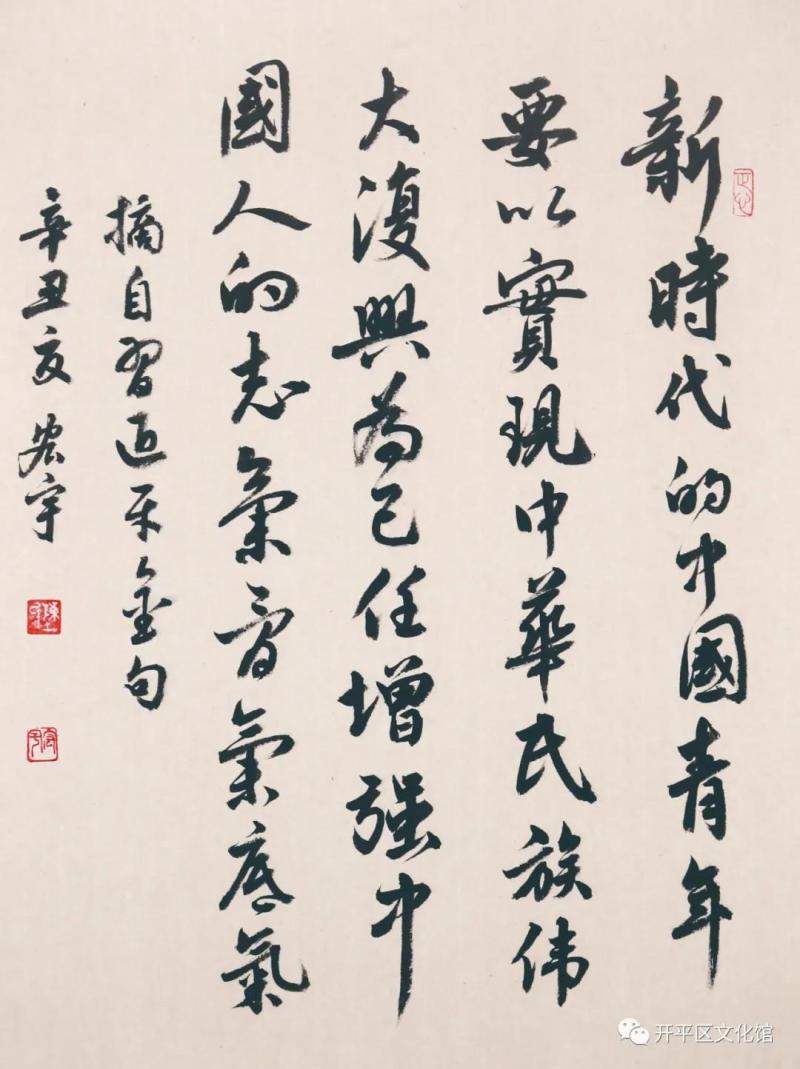 正心
新時代的中國青年
要以實現中華民族伟
大復興為己任增强中
國人的志氣骨氣底氣
摘自習近平金句
辛丑夏 宇
开平区文化馆